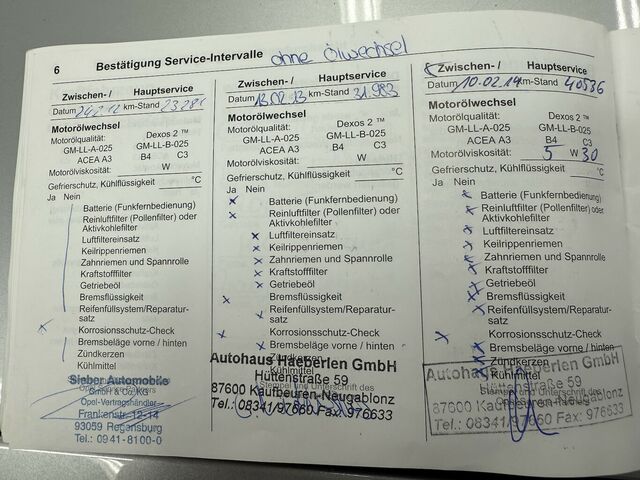 6
Bestätigung Service-Intervalle ohne Ölwechsel
Zwischen- / Hauptservice
Datum km-Stand
Motorölwechsel
Motorölqualität: Dexos 2 ™
GM-LL-A-025 GM-LL-B-025
ACEA A3 B4 C3
Motorölviskosität: W
Gefrierschutz, Kühlflüssigkeit °C
Ja Nein
Batterie (Funkfernbedienung)
Reinluftfilter (Pollenfilter) oder
Aktivkohlefilter
Luftfiltereinsatz
Keilrippenriemen
Zahnriemen und Spannrolle
Kraftstofffilter
Getriebeöl
Bremsflüssigkeit
Reifenfüllsystem/Reparatur-
satz
x Korrosionsschutz-Check
Bremsbeläge vorne / hinten
Zündkerzen
Kühlmittel
Sieber Automobile
GmbH & Co. KG
Opel-Vertragshändler
Frankenstr. 12-14
93059 Regensburg
Tel.: 09 41 - 81 00-0
Zwischen- / Hauptservice
Datum 13.02.13 km-Stand 31.983
Motorölwechsel
Motorölqualität: Dexos 2 ™
GM-LL-A-025 GM-LL-B-025
ACEA A3 B4 C3
Motorölviskosität: W
Gefrierschutz, Kühlflüssigkeit °C
Ja Nein
x Batterie (Funkfernbedienung)
x Reinluftfilter (Pollenfilter) oder
Aktivkohlefilter
x Luftfiltereinsatz
x Keilrippenriemen
x Zahnriemen und Spannrolle
x Kraftstofffilter
x Getriebeöl
x Bremsflüssigkeit
x Reifenfüllsystem/Reparatur-
satz
x Korrosionsschutz-Check
x Bremsbeläge vorne / hinten
Zündkerzen
Kühlmittel
Autohaus Haeberlen GmbH
Hüttenstraße 59
Stempel und Unterschrift des
87600 Kaufbeuren-Neugablonz
Tel.: 08341/97660 Fax: 976633
Zwischen- / Hauptservice
Datum 10.02.14 km-Stand 40536
Motorölwechsel
Motorölqualität: Dexos 2 ™
GM-LL-A-025 GM-LL-B-025
ACEA A3 B4 C3
Motorölviskosität: 5 W 30
Gefrierschutz, Kühlflüssigkeit °C
Ja Nein
x Batterie (Funkfernbedienung)
x Reinluftfilter (Pollenfilter) oder
Aktivkohlefilter
x Luftfiltereinsatz
x Keilrippenriemen
x Zahnriemen und Spannrolle
x Kraftstofffilter
x Getriebeöl
x Bremsflüssigkeit
x Reifenfüllsystem/Reparatur-
satz
x Korrosionsschutz-Check
x Bremsbeläge vorne / hinten
x Zündkerzen
x Kühlmittel
Autohaus Haeberlen GmbH
Hüttenstraße 59
Stempel und Unterschrift des
87600 Kaufbeuren-Neugablonz
Tel.: 08341/97660 Fax: 976633